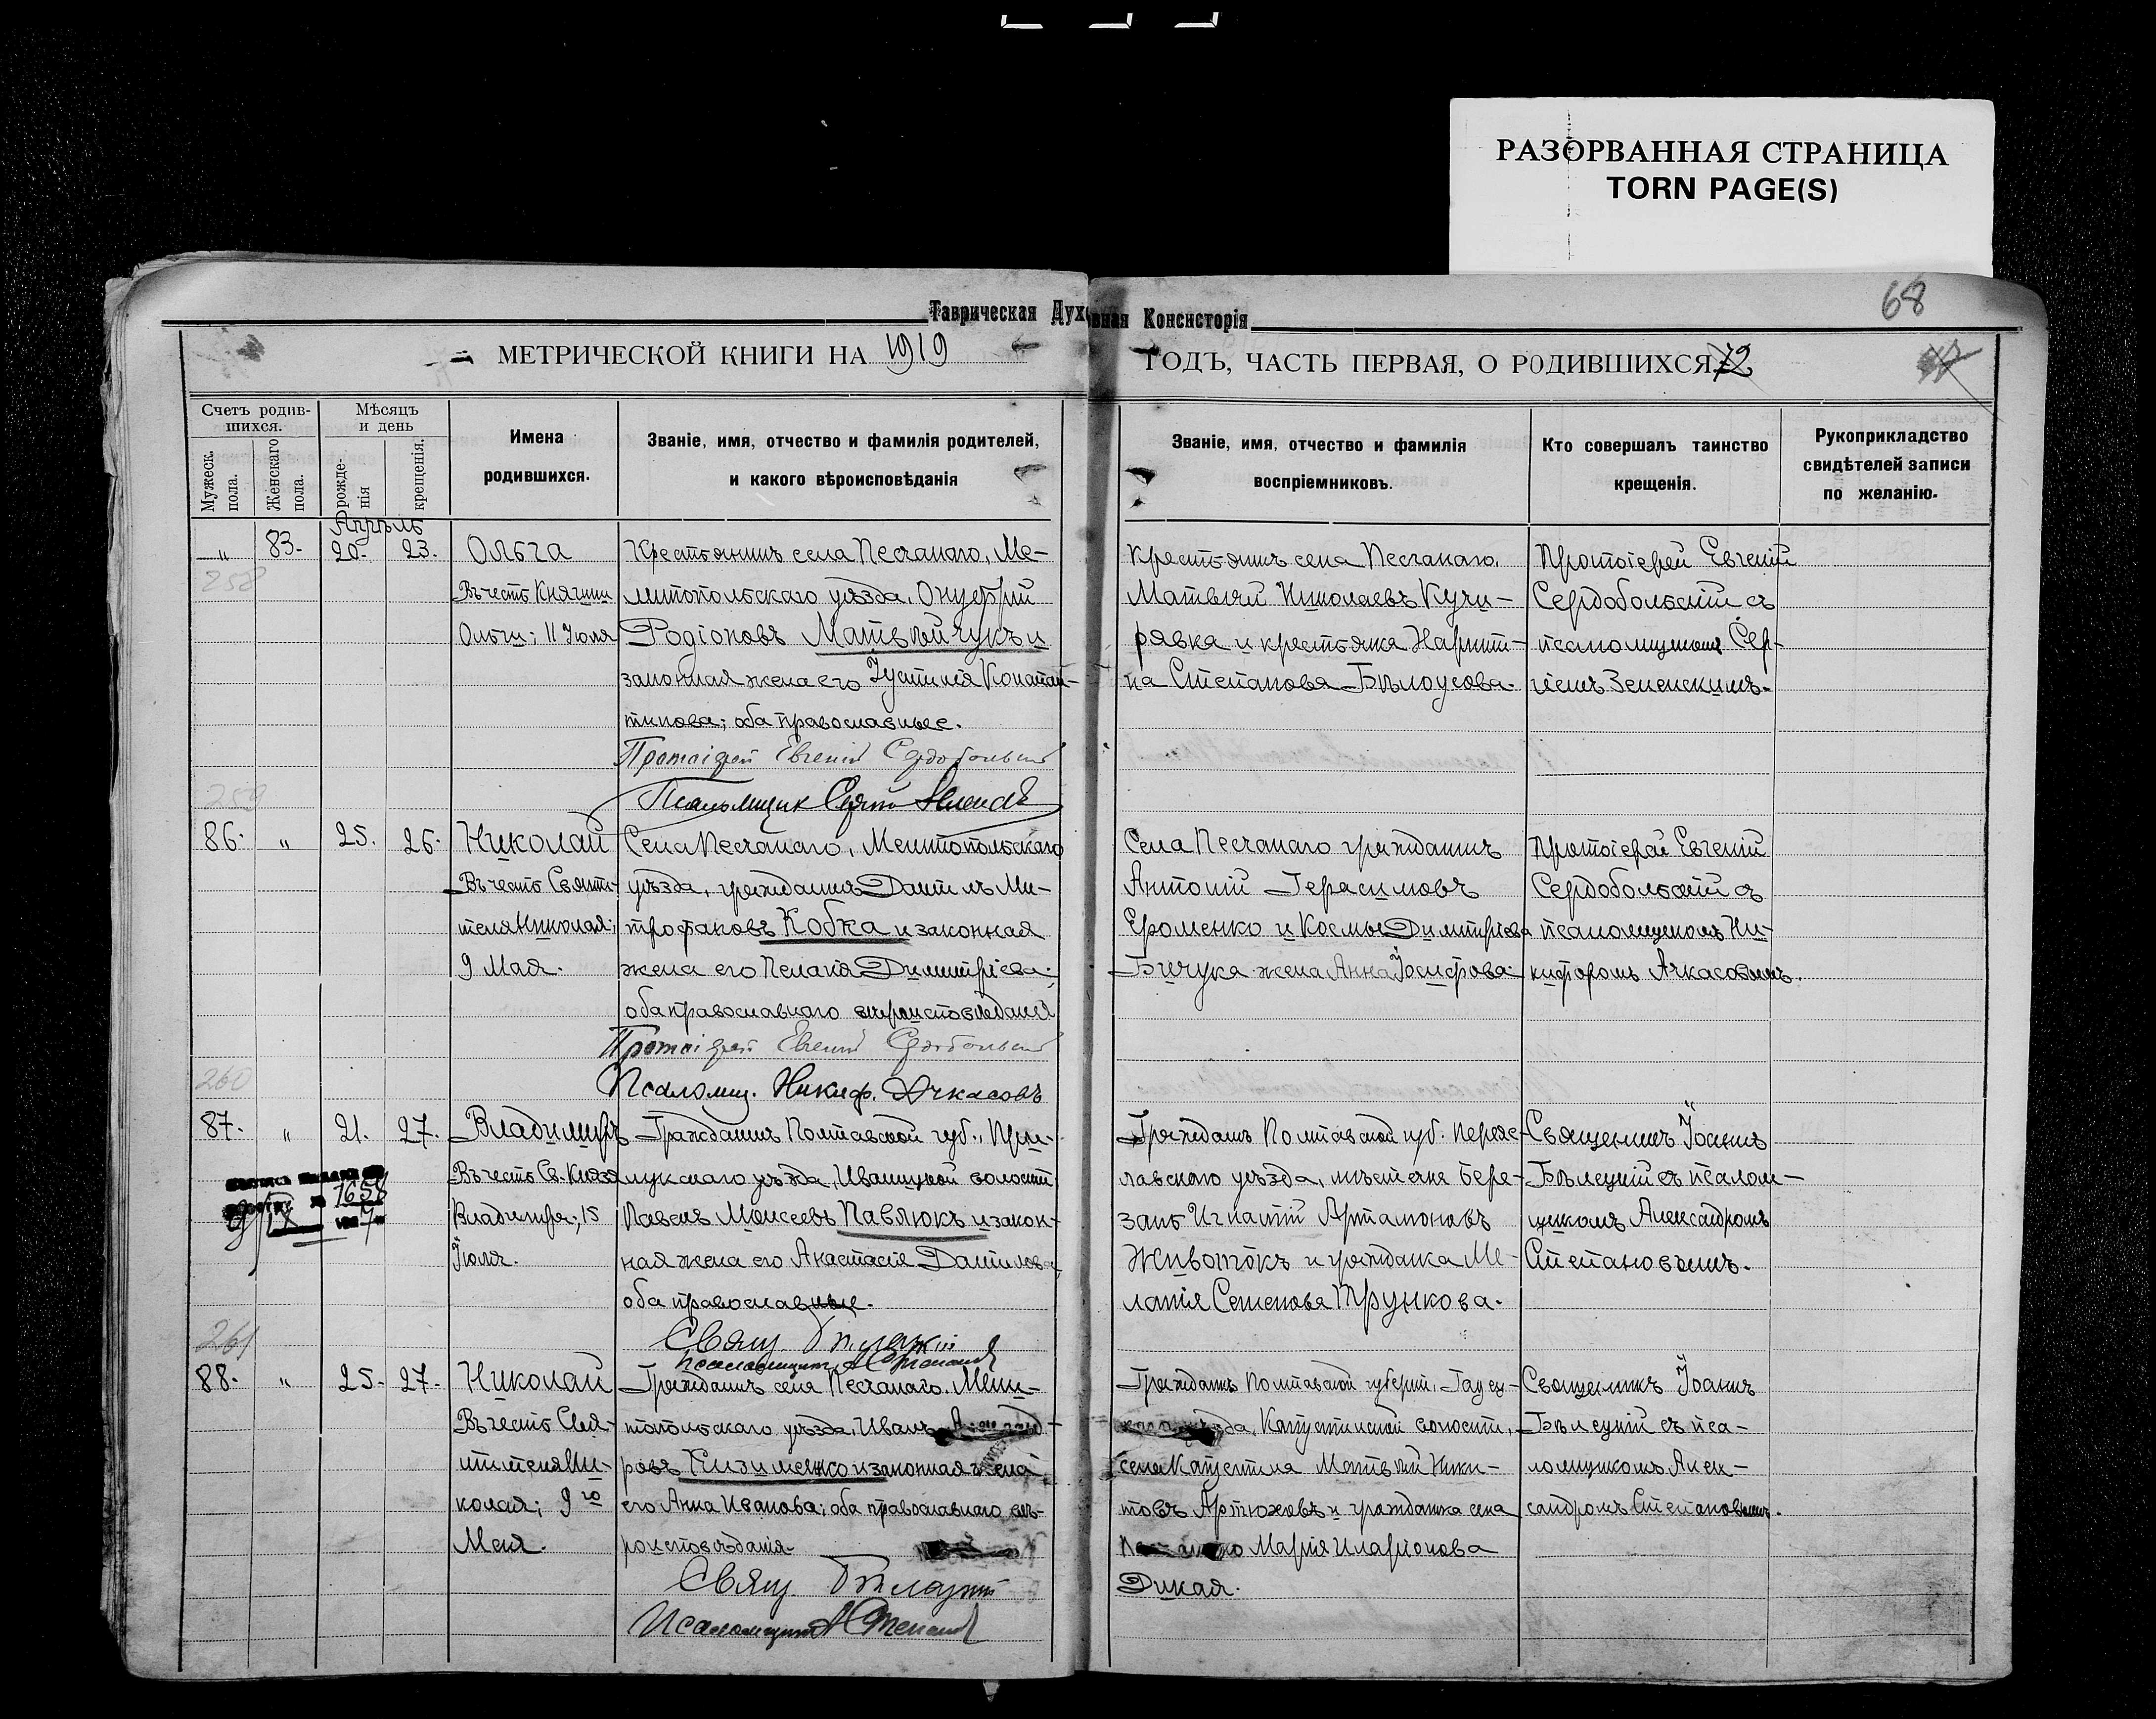 РАЗОРВАННАЯ СТРАНИЦА
TORN PAGE(S)
68
Таврическая Духовная Консисторія
МЕТРИЧЕСКОЙ КНИГИ НА 1919
ГОДЪ, ЧАСТЬ ПЕРВАЯ, О РОДИВШИХСЯ 72
Счетъ родив-
шихся.
Мужеск.
пола.
Женскаго
пола.
Мѣсяцъ
и день
рожде-
нія
крещенія.
Имена
родившихся.
Званіе, имя, отчество и фамилія родителей,
и какого вѣроисповѣданія
Званіе, имя, отчество и фамилія
воспріемниковъ.
Кто совершалъ таинство
крещенія.
Рукоприкладство
свидѣтелей записи
по желанію.
Апрѣль
„ 83. 20. 23.
258
Ольга
Въ честь Княгини
Ольги; 11 Іюля
Крестьянинъ села Песчанаго, Ме-
литопольскаго уѣзда, Онуфрій
Родіоновъ Матвѣйчукъ и
законная жена его Іустинія Констан-
тинова; оба православные.
Протоіерей Евгеній Сердобольскій
Псаломщик
Крестьянинъ села Песчанаго,
Матвѣй Николаевъ Кучи-
рявка и крестьянка Харити-
на Степанова Бѣлоусова.
Протоіерей Евгеній
Сердобольскій съ
псаломщикомъ Сер-
гіемъ Зеленскимъ.
259
86. „ 25. 26.
Николай
Въ честь Святи-
теля Николая;
9 Мая.
Села Песчанаго, Мелитопольскаго
уѣзда, гражданинъ Даніилъ Ми-
трофановъ Кобка и законная
жена его Пелагія Димитріева;
оба православнаго вѣроисповѣданія
Протоіерей Евгеній Сердобольскій
Псаломщ. Никиф. Ачкасовъ
Села Песчанаго гражданинъ
Антоній Герасимовъ
Ероменко и Космы Димитріева
Бичука жена Анна Іосифова.
Протоіерей Евгеній
Сердобольскій съ
псаломщикомъ Ни-
кифоромъ Ачкасовымъ.
260
87. „ 21. 27.
1658
Владимиръ
Въ честь Св. Князя
Владимира; 15
Іюля.
Гражданинъ Полтавской губ., При-
лукскаго уѣзда, Иваницкой волости
Павелъ Моисеевъ Павлюкъ и закон-
ная жена его Анастасія Даніилова,
оба православные.
Свящ. Бѣлецкій
Псаломщикъ А Степанов
Гражданинъ Полтавской губ. Переяс-
лавскаго уѣзда, мѣстечка Бере-
зань Игнатій Артамоновъ
Животокъ и гражданка Ме-
ланія Семенова Трункова.
Священникъ Іоаннъ
Бѣлецкій съ псалом-
щикомъ Александромъ
Степановымъ.
261
88. „ 25. 27.
Николай
Въ честь Свя-
тителя Ни-
колая; 9го
Мая.
Гражданинъ села Песчанаго, Мели-
топольскаго уѣзда, Иванъ
ровъ Кизименко и законная жена
его Анна Иванова; оба православнаго вѣ-
роисповѣданія.
Свящ Бѣлецкій
Псаломщикъ А Степанов
Гражданинъ Полтавской губерніи, Гадяч-
Капустинской волости,
села Капустина Матвѣй Ники-
товъ Артюховъ и гражданка села
Марія Иларіонова
Дикая.
Священникъ Іоаннъ
Бѣлецкій съ пса-
ломщикомъ Алек-
сандромъ Степановымъ.